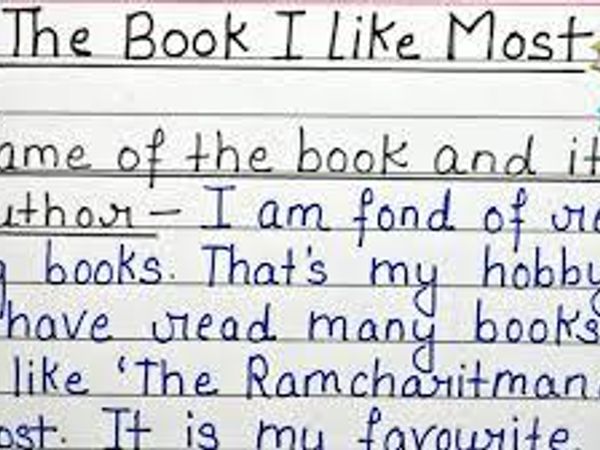 The Book I Like Most
ame of the book and it
uthor - I am fond of re
g books. That's my hobby
have read many books
like 'The Ramcharitman
ost. It is my favourite.